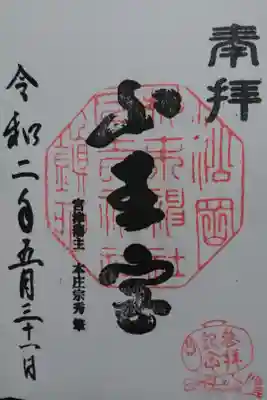 奉拝
山王宮
宮津藩主 本庄宗秀 筆
令和二年五月三十一日
參拝
記念